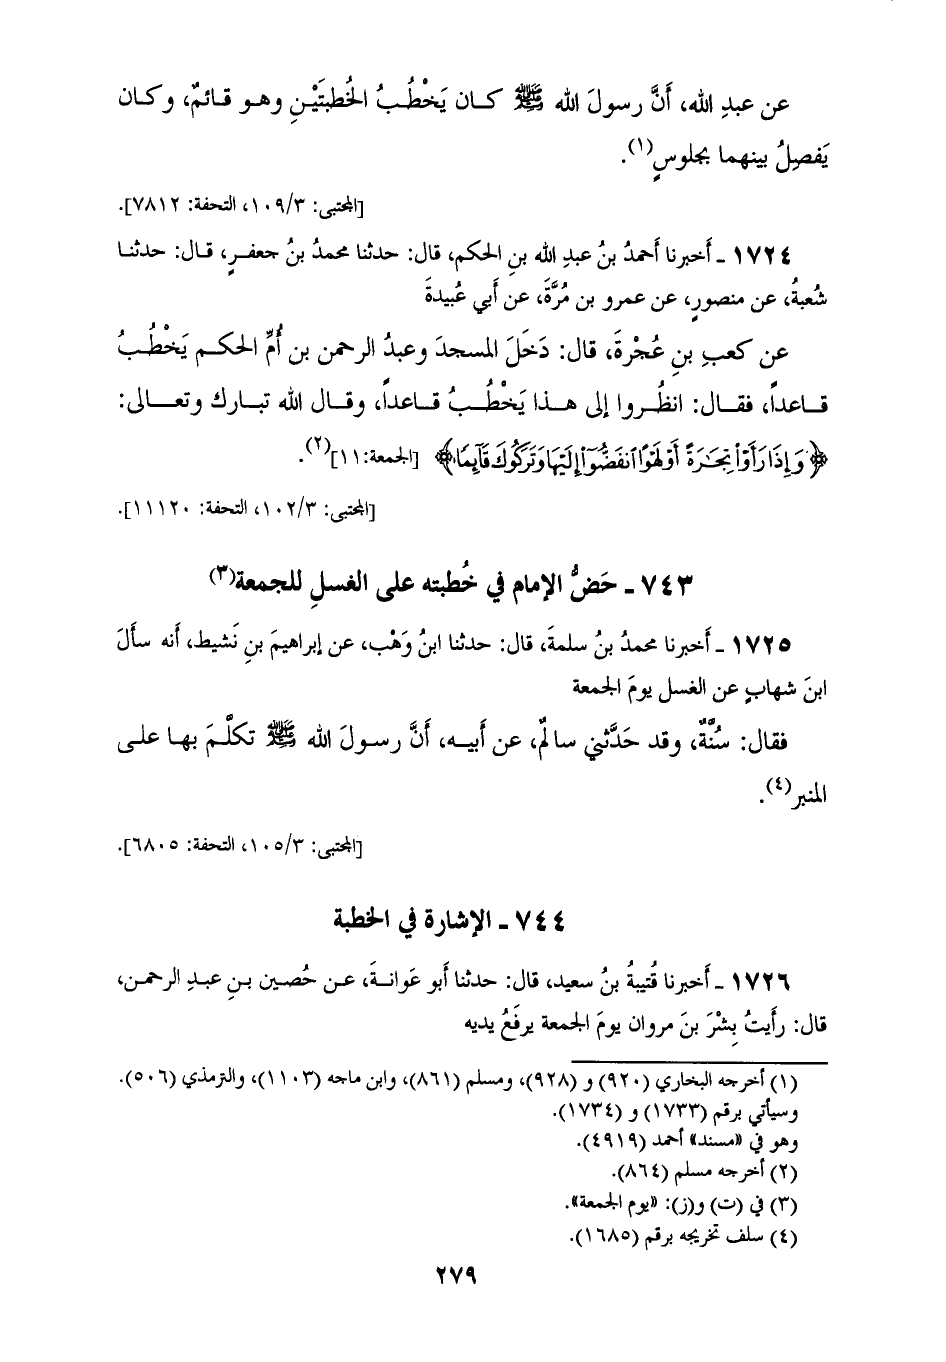 عن عبدِ الله، أَنَّ رسولَ الله ﷺ كـان يَخْطُبُ الخُطبتَيْنِ وهـو قـائمٌ، وكـان
يَفصِلُ بينهما بجلوسٍ(١).
[المجتبى: ١٠٩/٣، التحفة: ٧٨١٢].
١٧٢٤ ـ أَخبرنا أَحمدُ بنُ عبدِ الله بنِ الحكم، قال: حدثنا محمدُ بنُ جعفرٍ، قـال: حدثنـا
شُعبةُ، عن منصورٍ، عن عمرو بن مُرَّةَ، عن أَبي عُبيدةَ
عن كعبِ بنِ عُجْرةَ، قال: دَخَلَ المسجدَ وعبدُ الرحمن بن أُمِّ الحكـم يَخْطُـبُ
قـاعداً، فقـال: انظُـروا إلى هـذا يَخْطُـبُ قـاعداً، وقـال الله تبـارك وتعـالى:
﴿وَإِذَا رَأَوْا۟ تِجَٰرَةً أَوْ لَهْوًا ٱنفَضُّوٓا۟ إِلَيْهَا وَتَرَكُوكَ قَآئِمًا﴾ [الجمعة:١١](٢).
[المجتبى: ١٠٢/٣، التحفة: ١١١٢٠].
٧٤٣ ـ حَضُّ الإمام في خُطبته على الغسلِ للجمعة(٣)
١٧٢٥ ـ أَخبرنا محمدُ بنُ سلمةَ، قال: حدثنا ابنُ وَهْب، عن إبراهيمَ بنِ نَشيط، أَنه سأَلَ
ابنَ شهابٍ عن الغسل يومَ الجمعة
فقال: سُنَّةٌ، وقد حَدَّثني سالمٌ، عن أَبيـه، أَنَّ رسـولَ الله ﷺ تكلَّـمَ بهـا علـى
المنبر(٤).
[المجتبى: ١٠٥/٣، التحفة: ٦٨٠٥].
٧٤٤ ـ الإشارة في الخطبة
١٧٢٦ ـ أَخبرنا قُتيبةُ بنُ سعيد، قال: حدثنا أَبو عَوانـةَ، عـن حُصـين بـنِ عبـدِ الرحمـن،
قال: رأَيتُ بِشْرَ بنَ مروان يومَ الجمعة يرفَعُ يديه
(١) أخرجه البخاري (٩٢٠) و (٩٢٨)، ومسلم (٨٦١)، وابن ماجه (١١٠٣)، والترمذي (٥٠٦).
وسيأتي برقم (١٧٣٣) و (١٧٣٤).
وهو في «مسند» أحمد (٤٩١٩).
(٢) أخرجه مسلم (٨٦٤).
(٣) في (ت) و(ز): «يوم الجمعة».
(٤) سلف تخريجه برقم (١٦٨٥).
٢٧٩